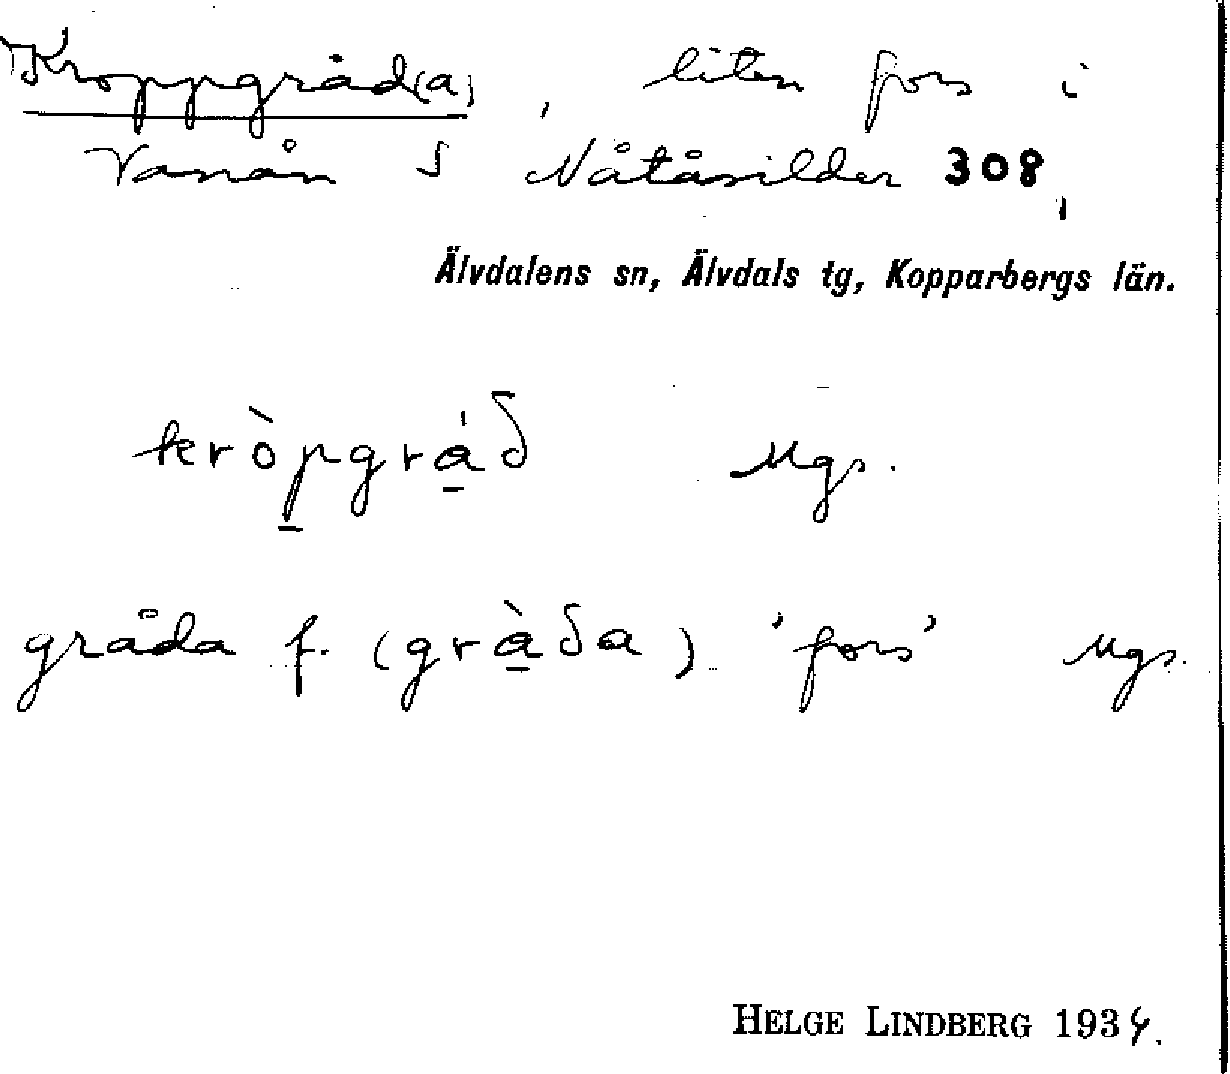 Kroppgråd(a), liten fors i
Vanån S Nåtåsilder 308,
Älvdalens sn, Älvdals tg, Kopparbergs län.
kròpgrá̱ð Mgs.
gråda f. (grà̱ða) 'fors' Mgs.
HELGE LINDBERG 1934.